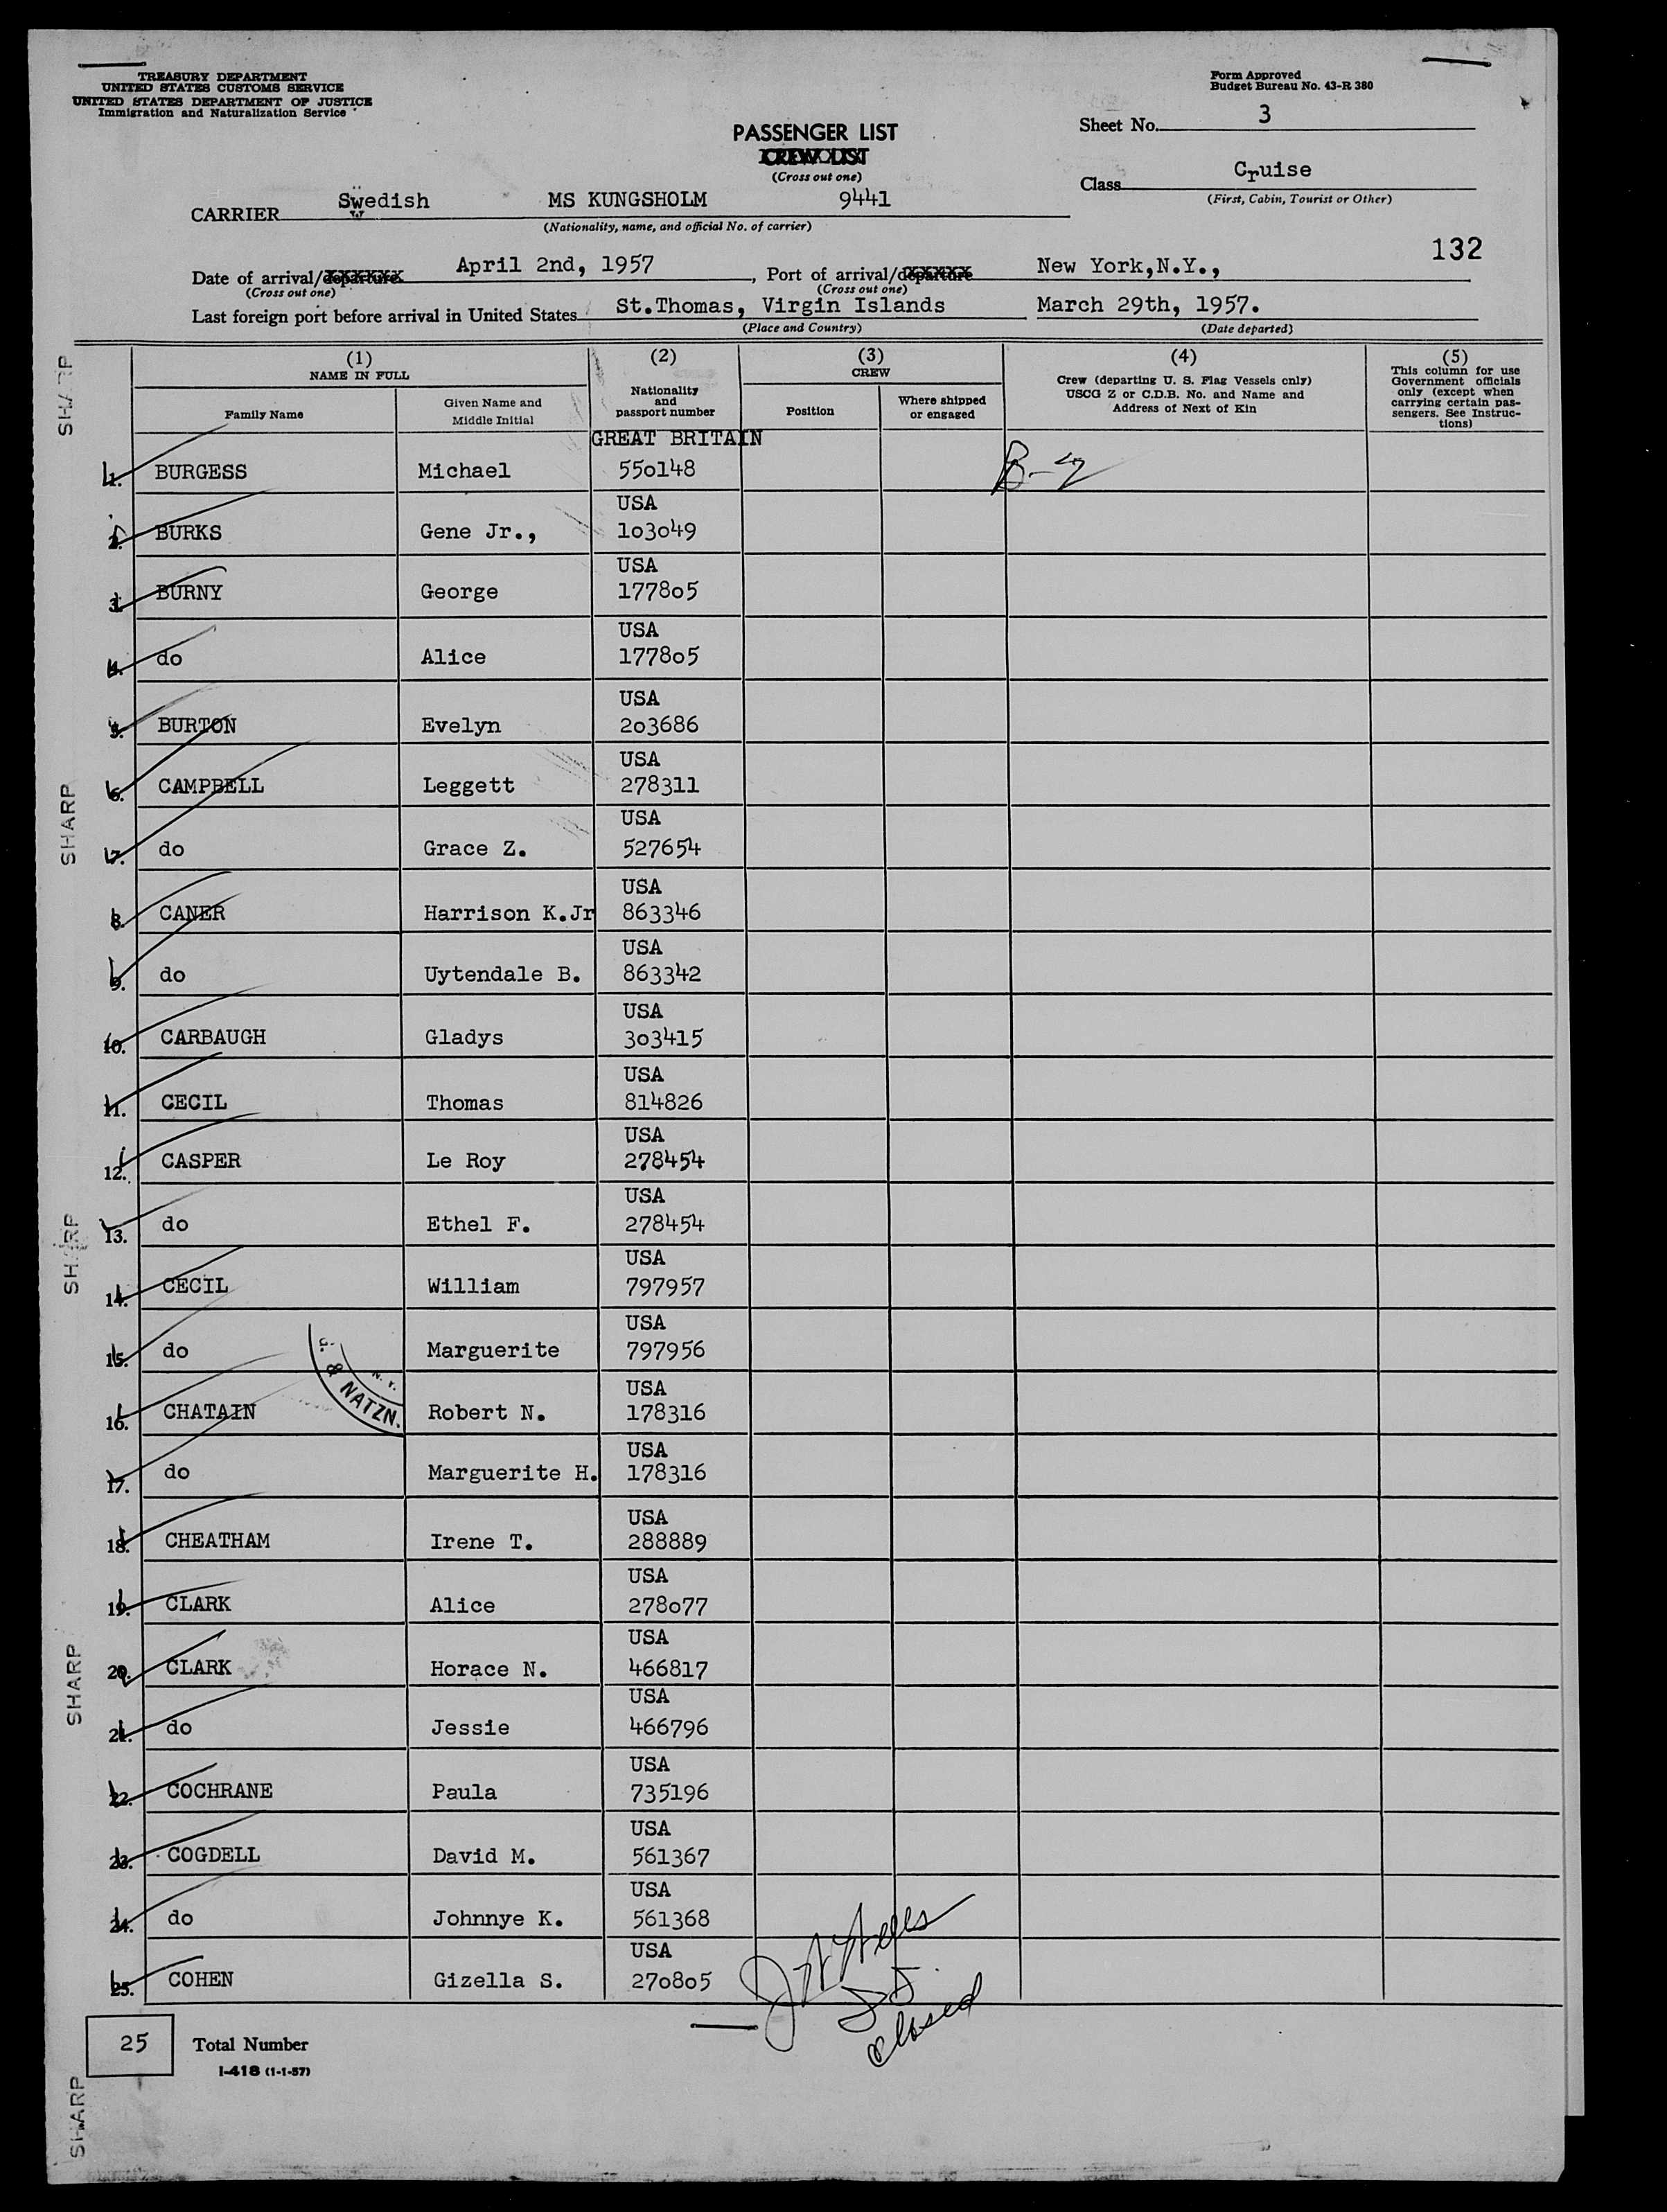 TREASURY DEPARTMENT
UNITED STATES CUSTOMS SERVICE
UNITED STATES DEPARTMENT OF JUSTICE
Immigration and Naturalization Service
Form Approved
Budget Bureau No. 43-R 380
PASSENGER LIST
CREW LIST
(Cross out one)
Sheet No. 3
Class Cruise
(First, Cabin, Tourist or Other)
CARRIER Swedish MS KUNGSHOLM 9441
(Nationality, name, and official No. of carrier)
132
Date of arrival/departure April 2nd, 1957, Port of arrival/departure New York,N.Y.,
(Cross out one) (Cross out one)
Last foreign port before arrival in United States St.Thomas, Virgin Islands March 29th, 1957.
(Place and Country) (Date departed)
(1) (2) (3) (4) (5)
NAME IN FULL
Family Name
Given Name and
Middle Initial
Nationality
and
passport number
CREW
Position
Where shipped
or engaged
Crew (departing U. S. Flag Vessels only)
USCG Z or C.D.B. No. and Name and
Address of Next of Kin
This column for use
Government officials
only (except when
carrying certain pas-
sengers. See Instruc-
tions)
GREAT BRITAIN
1. BURGESS Michael 550148 B-2
USA
2. BURKS Gene Jr., 103049
USA
3. BURNY George 177805
USA
4. do Alice 177805
USA
5. BURTON Evelyn 203686
USA
6. CAMPBELL Leggett 278311
USA
7. do Grace Z. 527654
USA
8. CANER Harrison K.Jr 863346
USA
9. do Uytendale B. 863342
USA
10. CARBAUGH Gladys 303415
USA
11. CECIL Thomas 814826
USA
12. CASPER Le Roy 278454
USA
13. do Ethel F. 278454
USA
14. CECIL William 797957
USA
15. do Marguerite 797956
USA
16. CHATAIN Robert N. 178316
USA
17. do Marguerite H. 178316
USA
18. CHEATHAM Irene T. 288889
USA
19. CLARK Alice 278077
USA
20. CLARK Horace N. 466817
USA
21. do Jessie 466796
USA
22. COCHRANE Paula 735196
USA
23. COGDELL David M. 561367
USA
24. do Johnnye K. 561368
USA
25. COHEN Gizella S. 270805
closed
25 Total Number
I-418 (1-1-57)
& NATZN.
N. Y.
SHARP
SHARP
SHARP
SHARP
SHARP